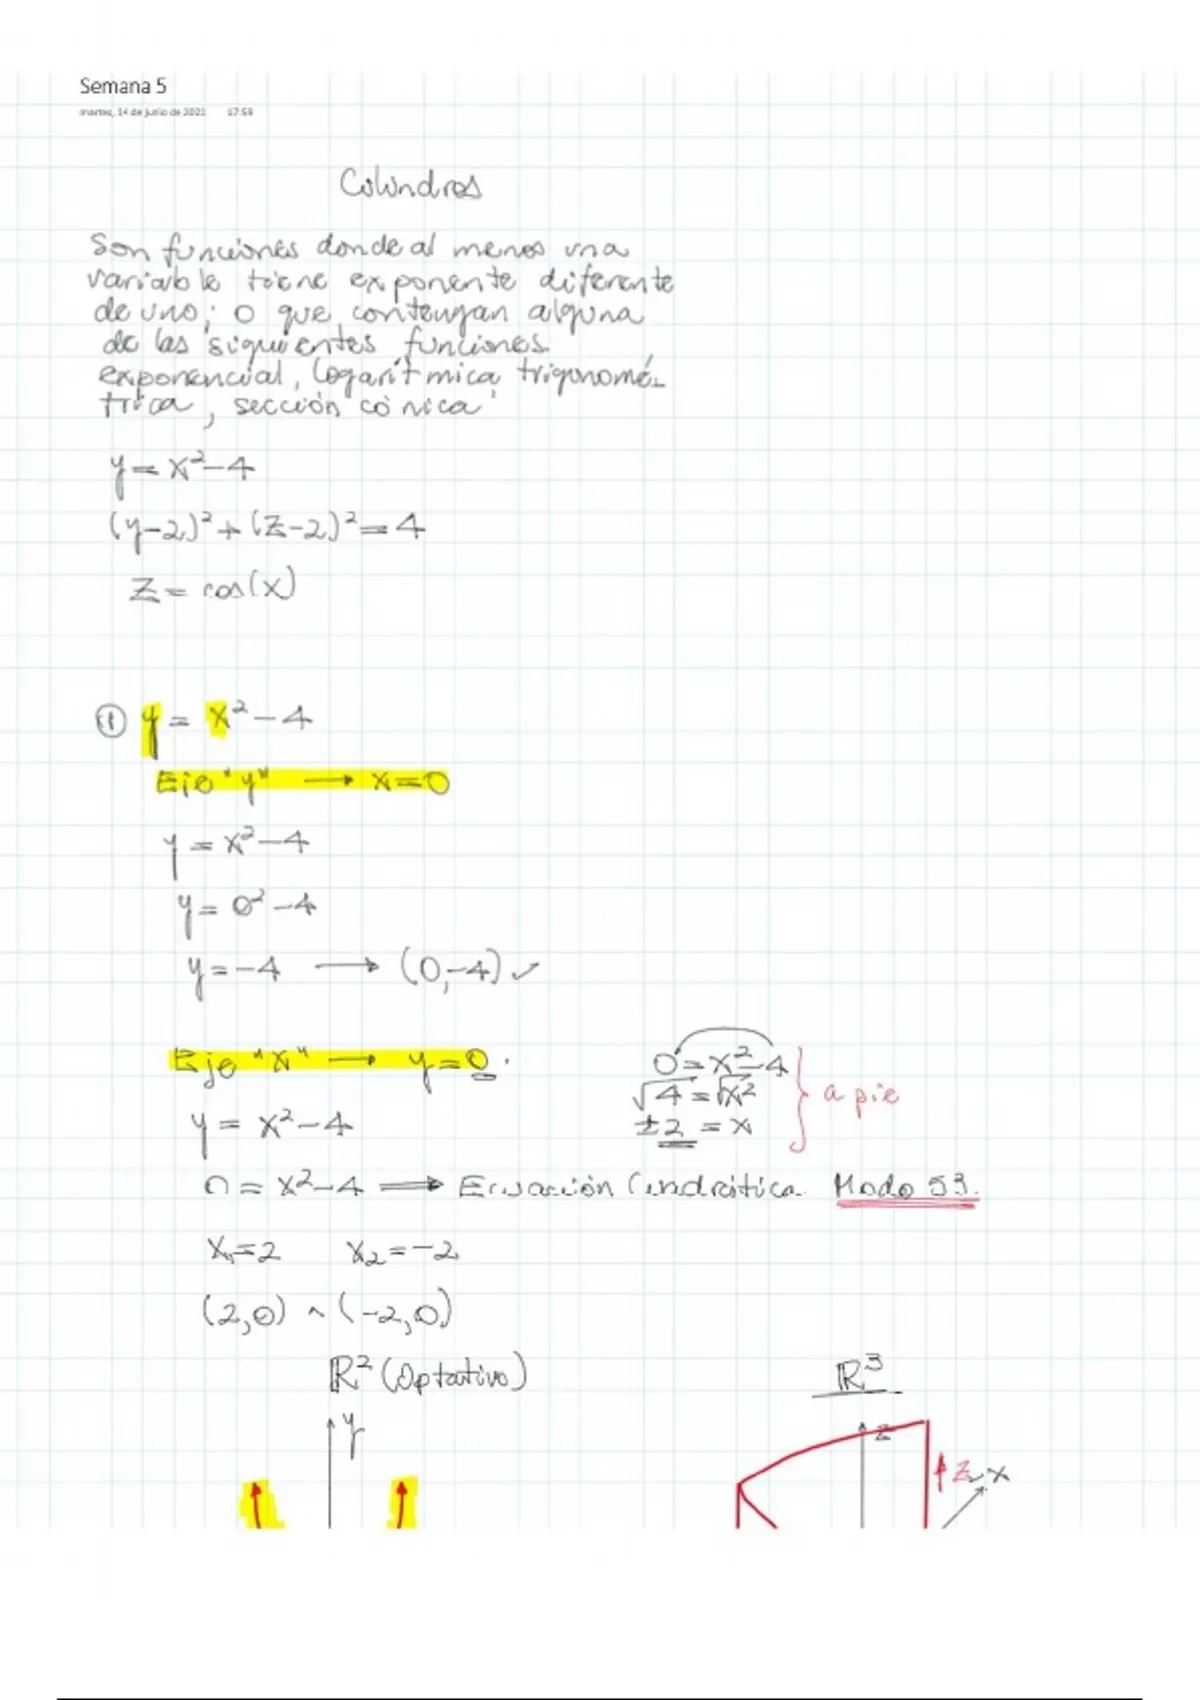 Semana 5
martes, 14 de junio de 2022 17:59
Cilindros
Son funciones donde al menos una
variable tiene exponente diferente
de uno; o que contengan alguna
de las siguientes funciones
exponencial, logarítmica, trigonomé-
trica, sección cónica
y = x² - 4
(y-2)² + (z-2)² = 4
z = cos(x)
① y = x² - 4
Eje "y" → x = 0
y = x² - 4
y = 0² - 4
y = -4 → (0,-4) ✓
Eje "x" → y = 0.
0 = x² - 4
√4 = √x² } a pie
±2 = x
y = x² - 4
0 = x² - 4 ⇒ Ecuación Cuadrática. Modo 53.
x₁ = 2 x₂ = -2
(2,0) ^ (-2,0)
R² (Optativo) R³
y z
z x